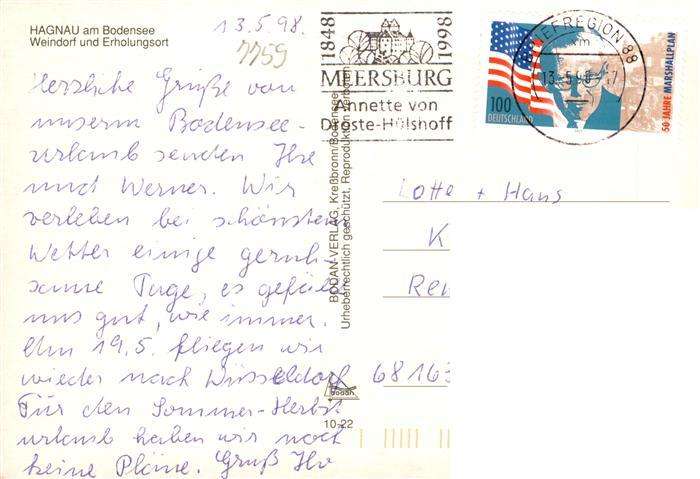 HAGNAU am Bodensee
Weindorf und Erholungsort
13.5.98.
7759
Herzliche Grüße von
unserm Bodensee-
urlaub senden Ihre
und Werner. Wir
verleben bei schönstem
Wetter einige geruh-
same Tage, es gefällt
uns gut, wie immer.
Am 19.5. fliegen wir
wieder nach Düsseldorf
Für den Sommer-Herbst
urlaub haben wir noch
keine Pläne. Gruß
BODAN-VERLAG, Kreßbronn/Bodensee
Urheberrechtlich geschützt, Reproduktion verboten
BODAN
10-22
1848
1998
MEERSBURG
Annette von
Droste-Hülshoff
BRIEFREGION 88
13.-5.98
100
DEUTSCHLAND
50 JAHRE MARSHALLPLAN
Lotte + Hans
K
Rei
68163